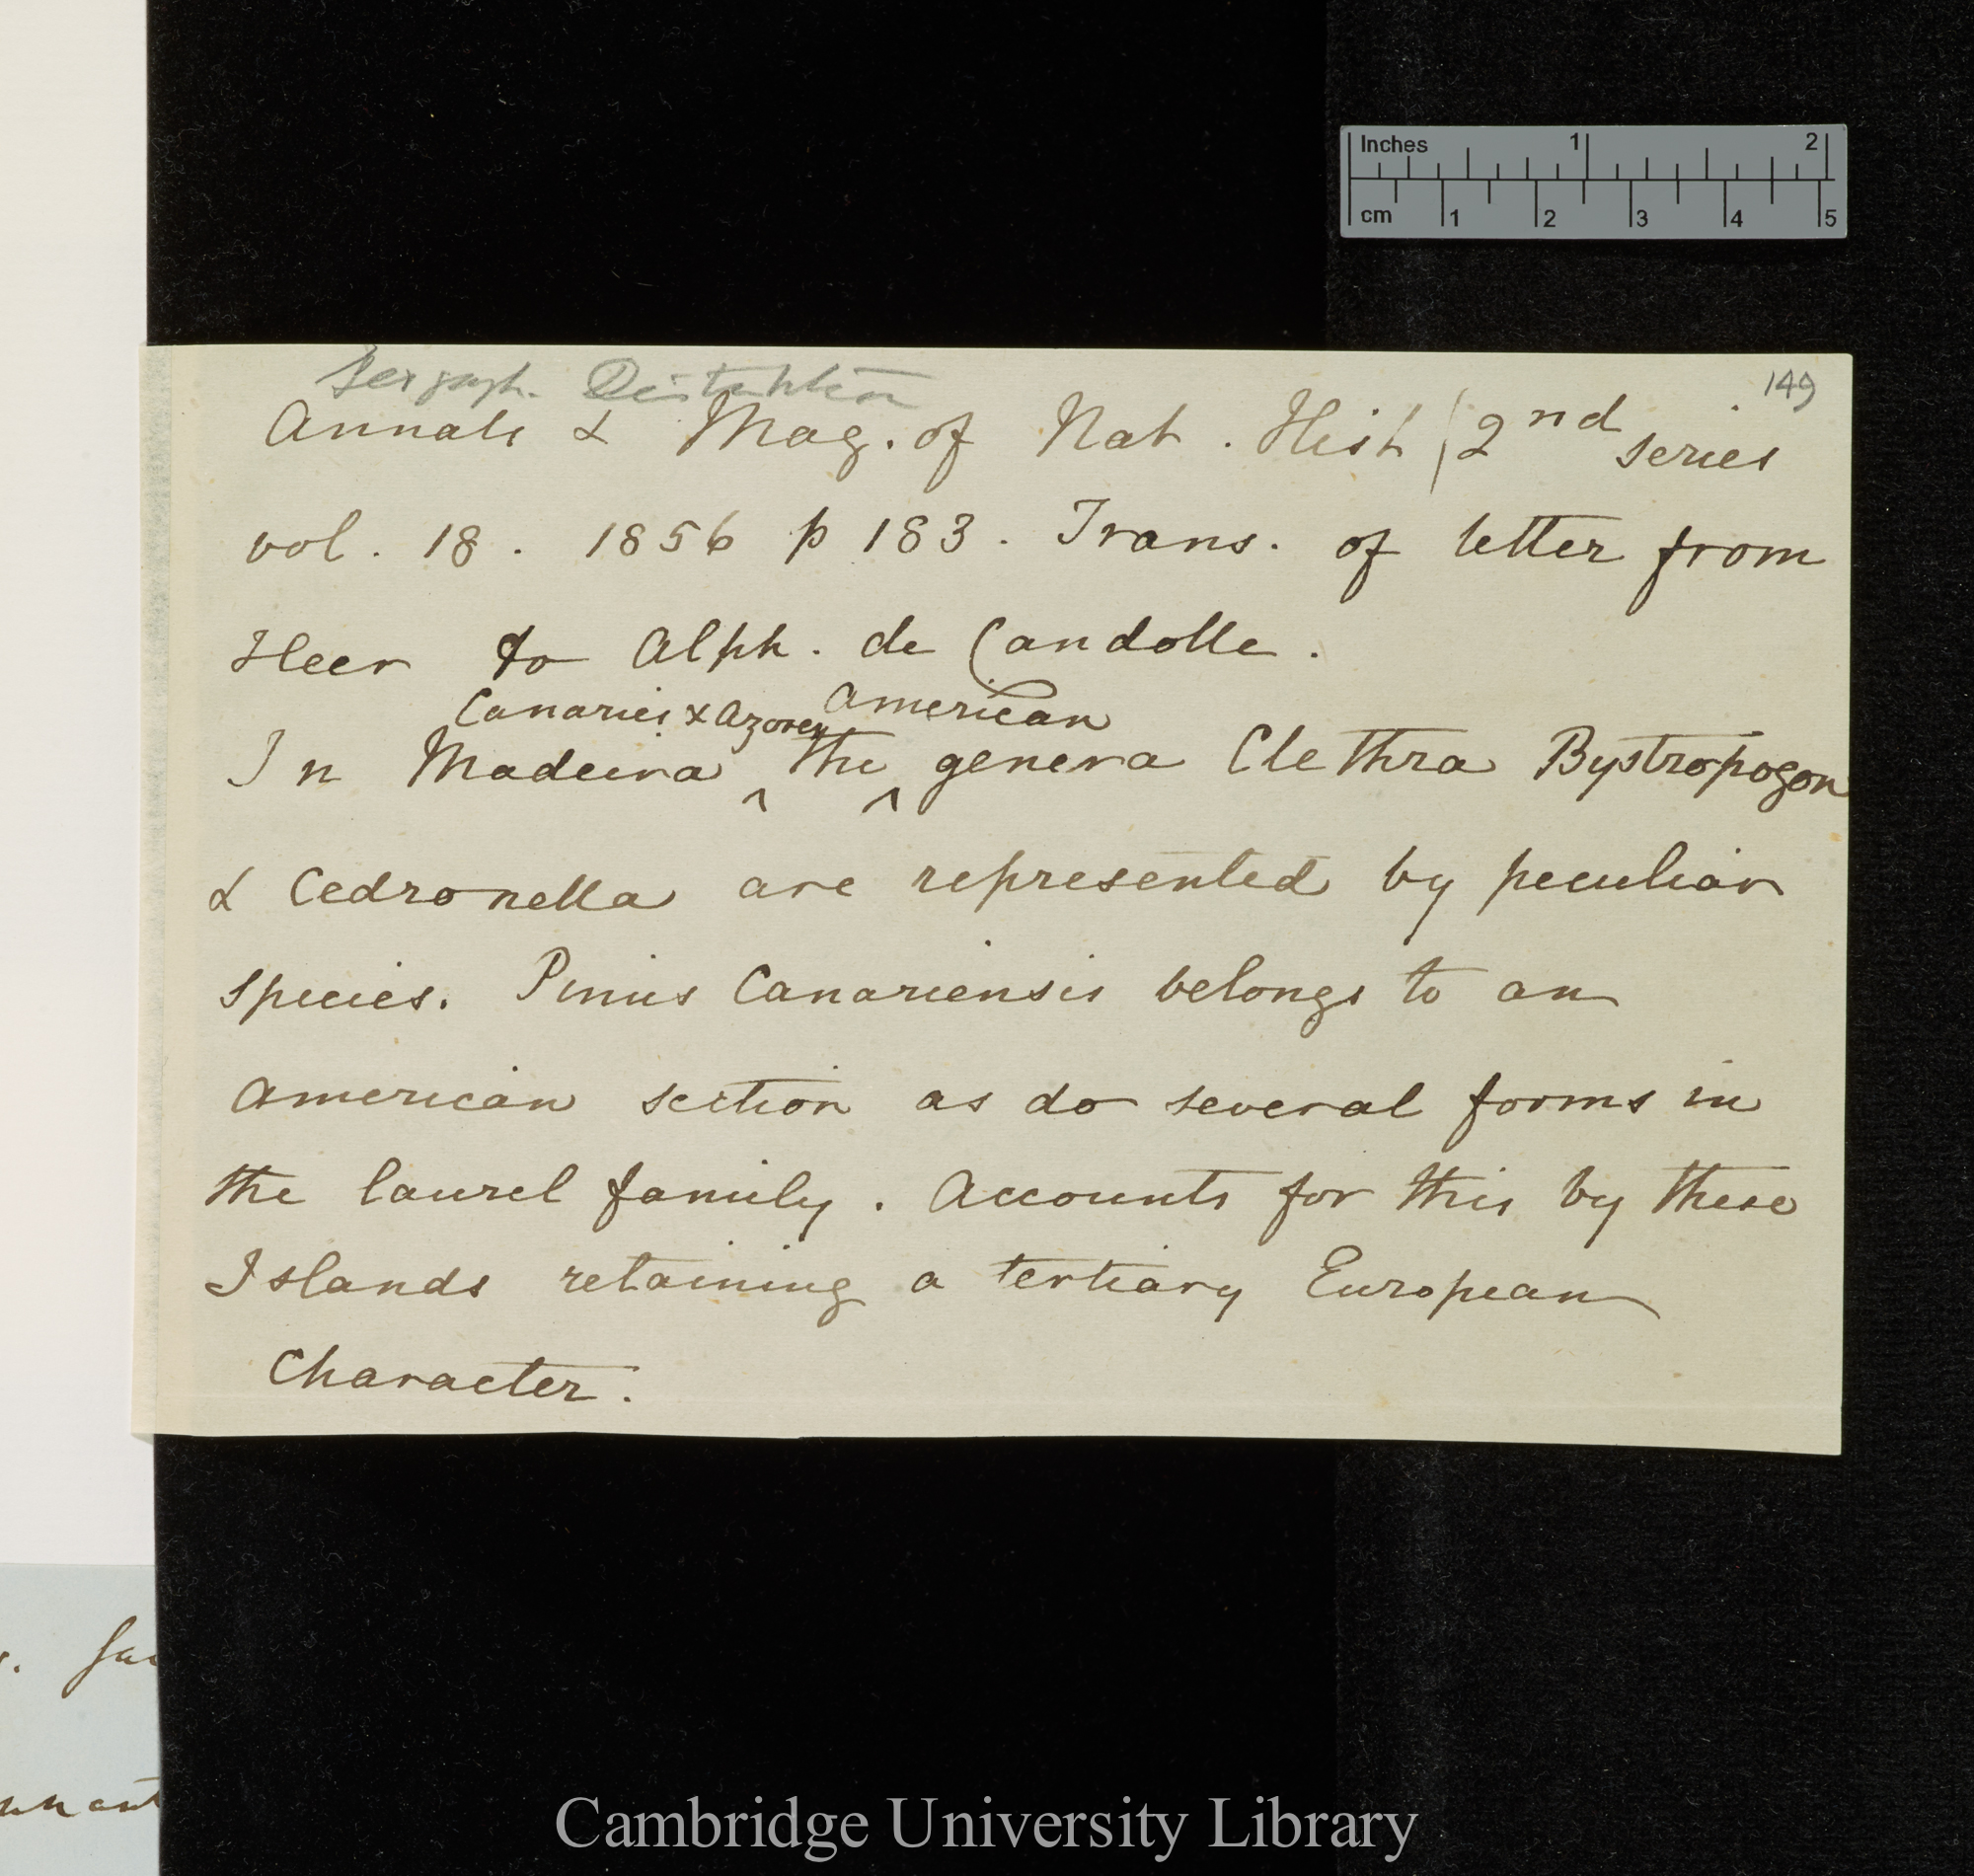 Inches 1 2
cm 1 2 3 4 5
149
Geograph. Distribution
Annals & Mag. of Nat. Hist (2nd series
vol. 18. 1856 p 183. Trans. of letter from
Heer to Alph. de Candolle.
Canaries & Azores American
In Madeira ^ the ^ genera Clethra Bystropogon
& Cedronella are represented by peculiar
species. Pinus Canariensis belongs to an
American section as do several forms in
the laurel family. Accounts for this by these
Islands retaining a tertiary European
Character.
Cambridge University Library